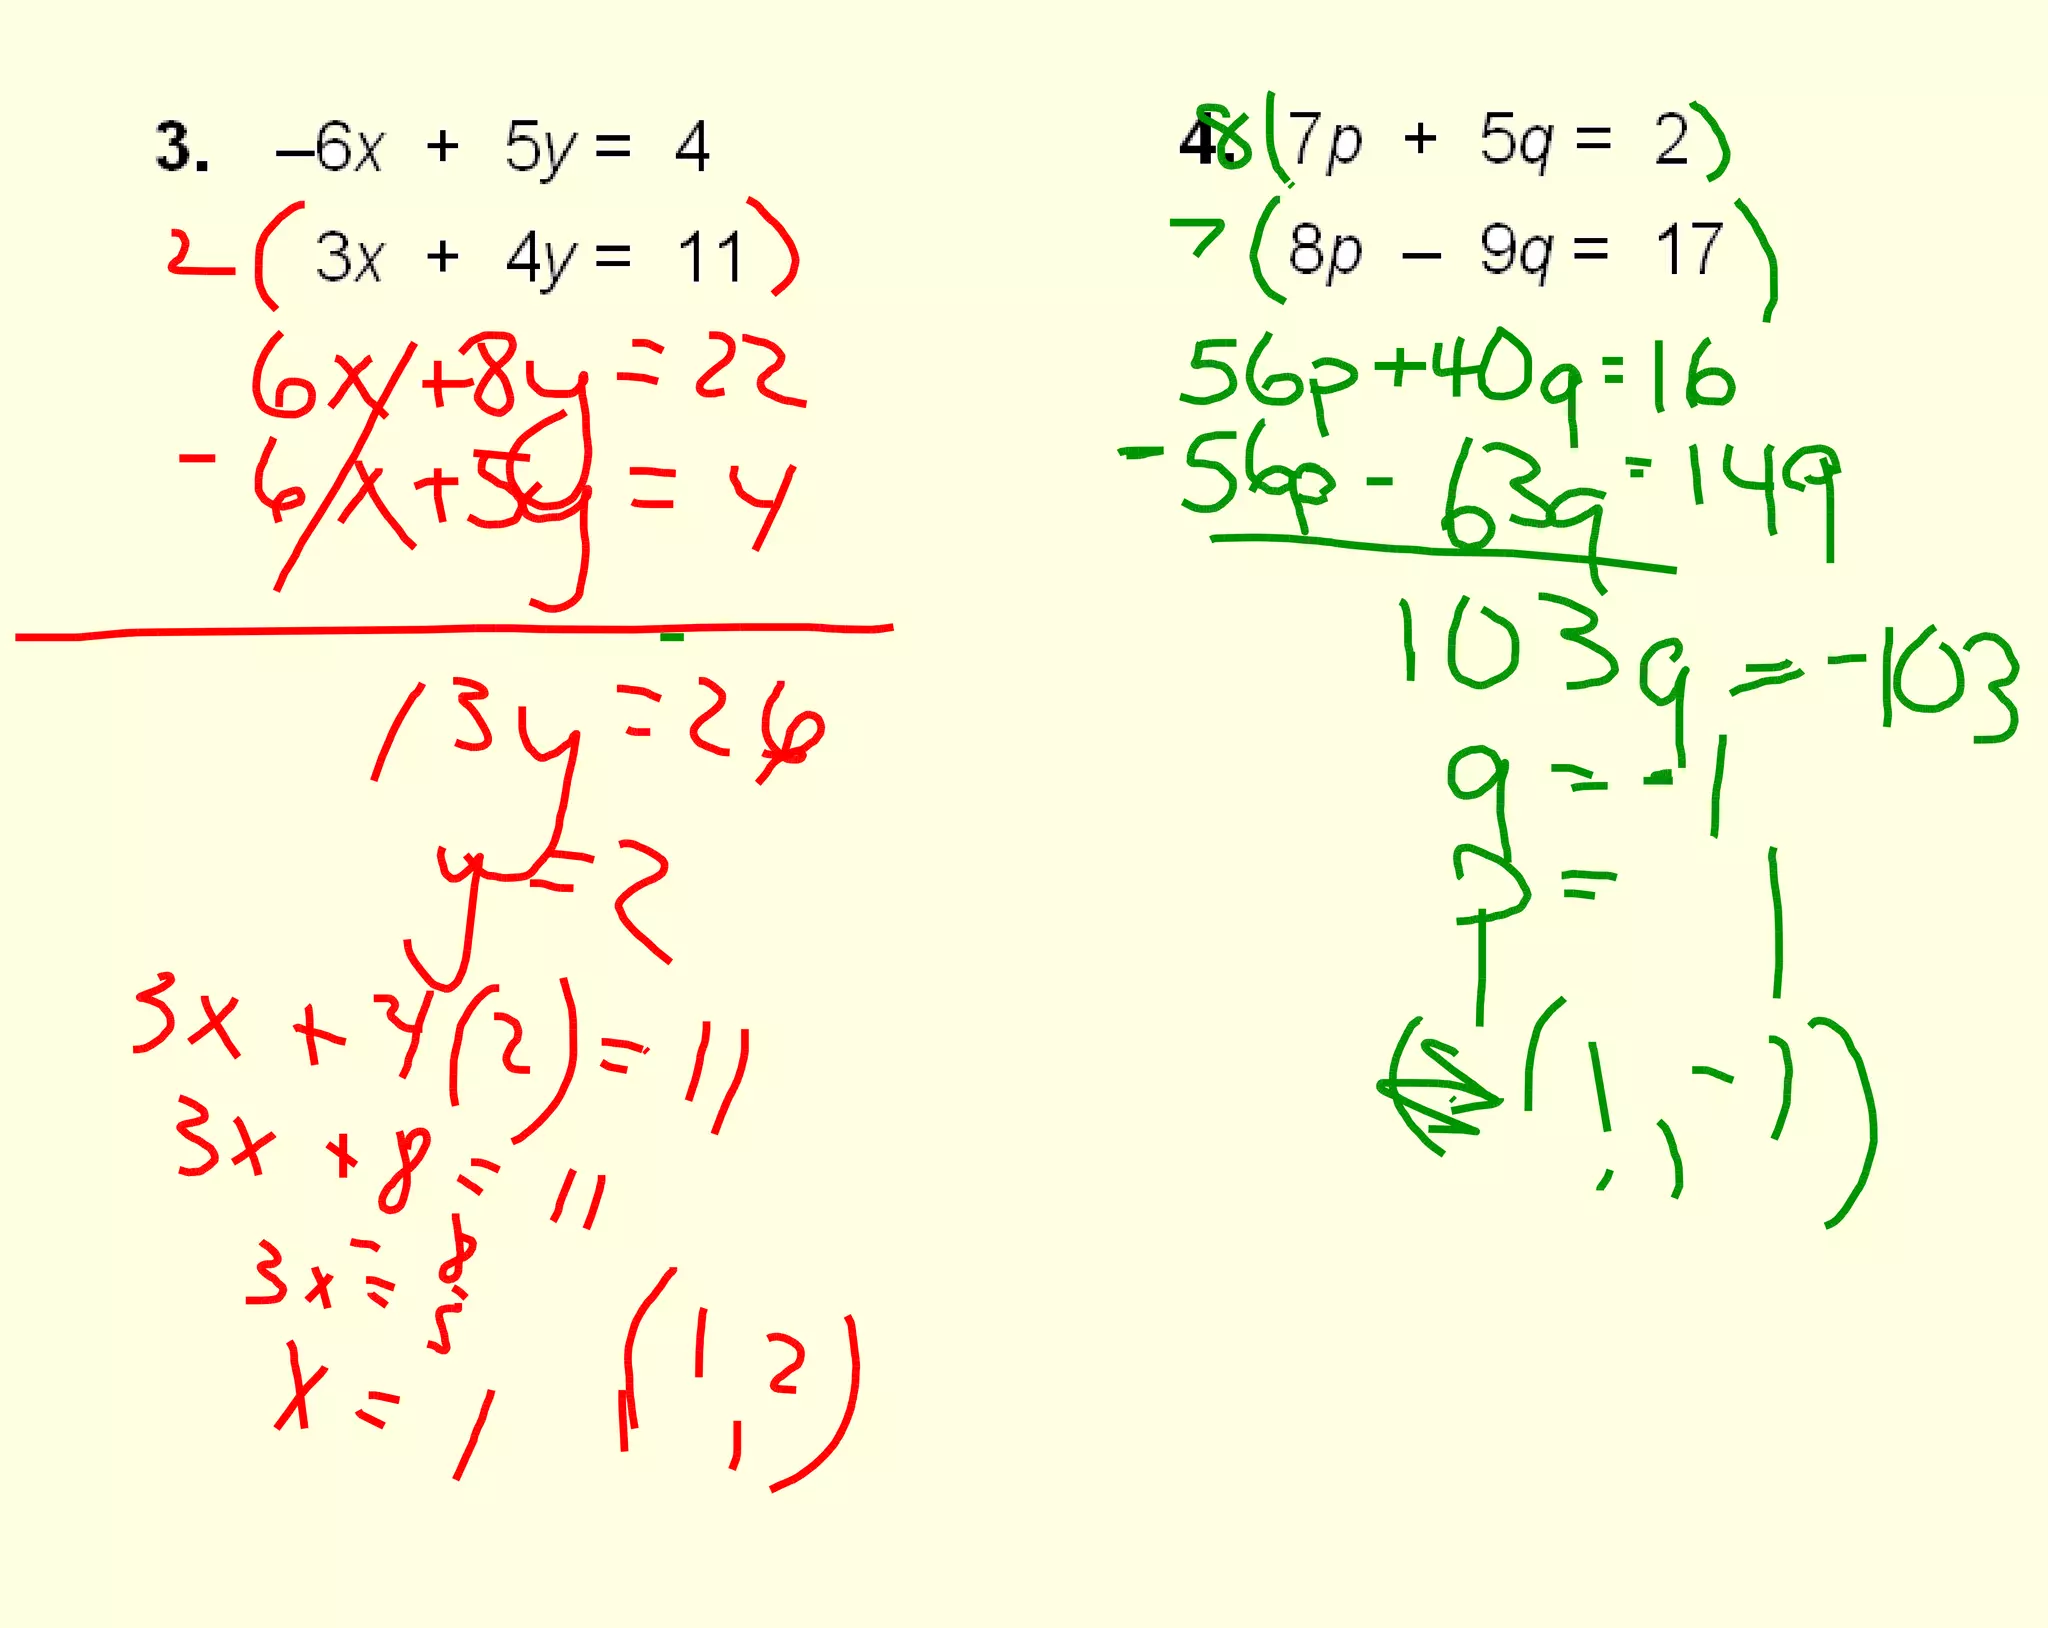 3. –6x + 5y = 4
2 ( 3x + 4y = 11 )
6x + 8y = 22
- 6x + 5y = 4
13y = 26
y = 2
3x + 4(2) = 11
3x + 8 = 11
3x =
x = 1 (1, 2)
4. 8(7p + 5q = 2)
7 (8p – 9q = 17)
56p + 40q = 16
- 56p - 63q = 149
103q = -103
q = -1
p = 1
(1, -1)